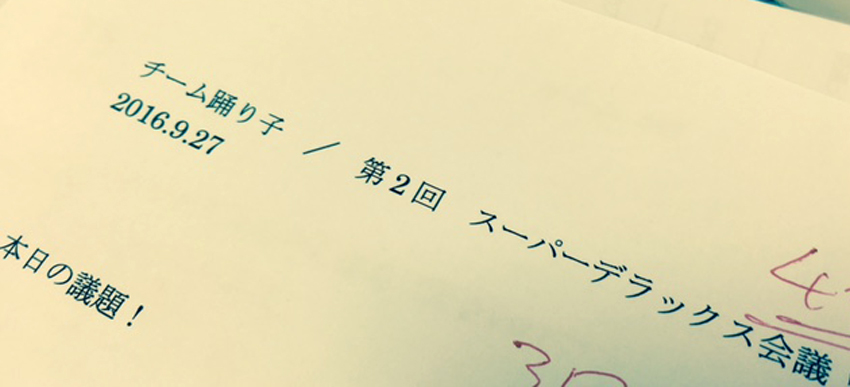 チーム踊り子 / 第2回 スーパーデラックス会議
2016.9.27
本日の議題!